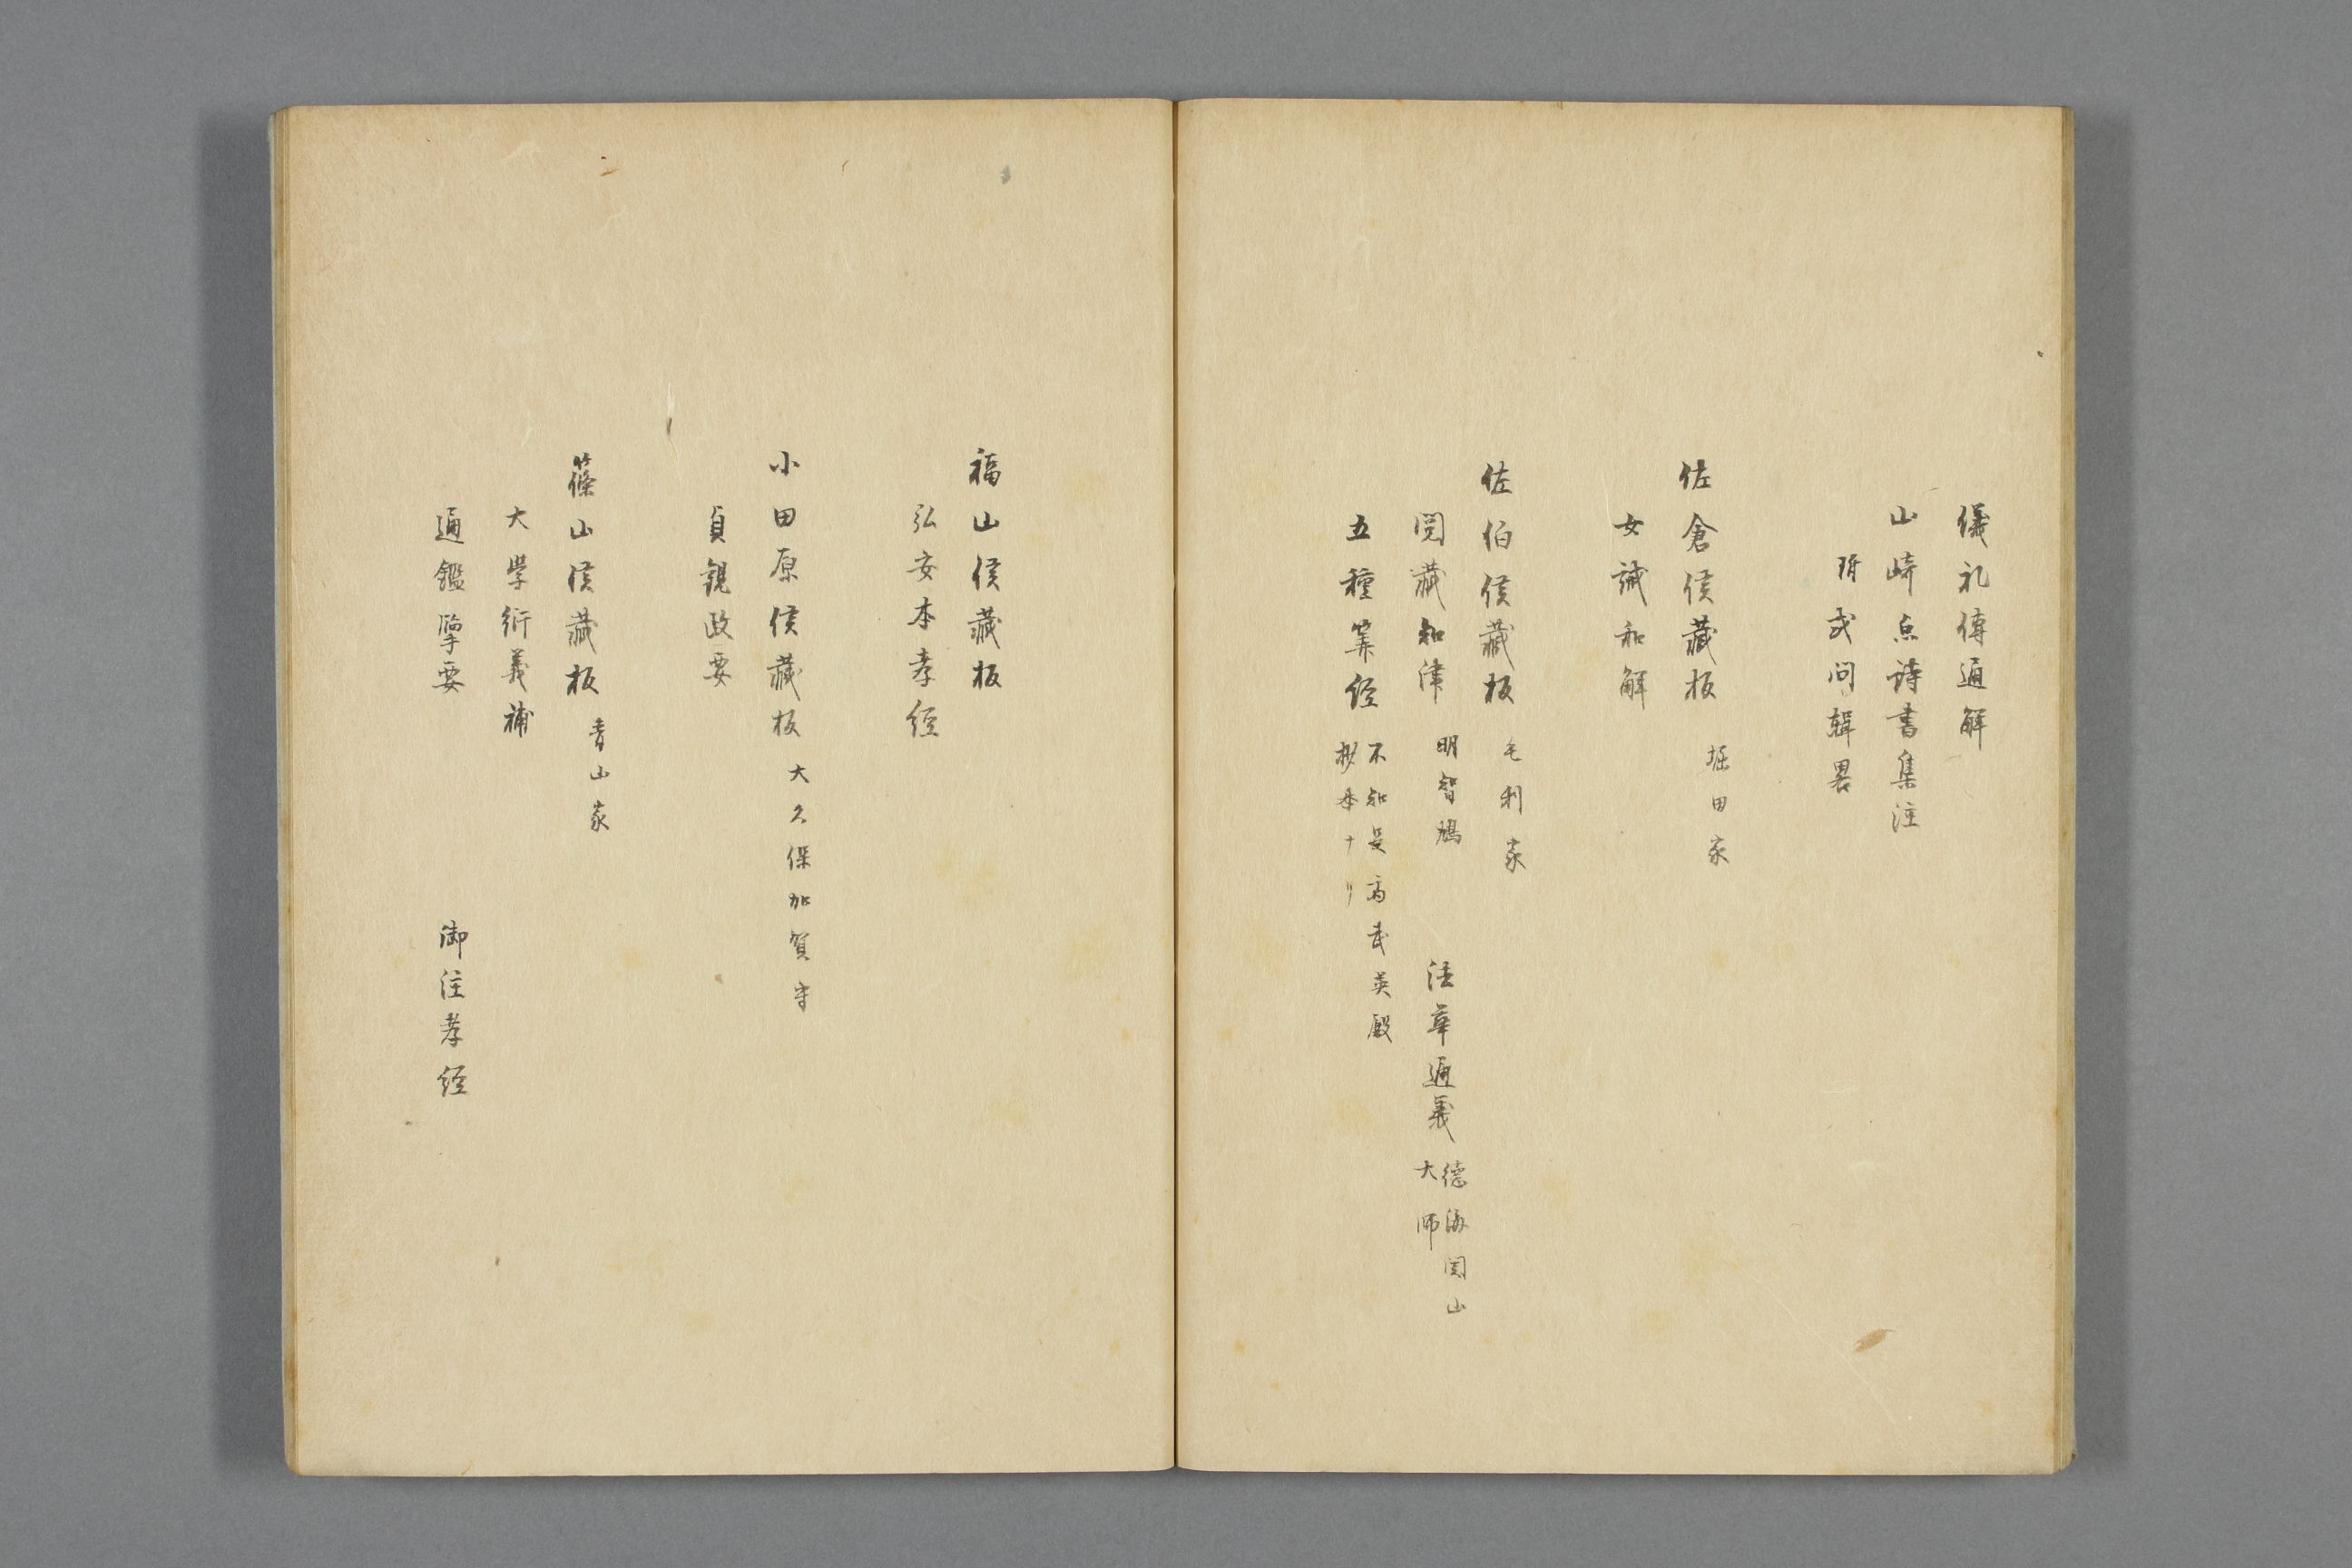 儀礼傳通解
山崎点詩書集注
附或問輯畧
佐倉侯藏板 堀田家
女誡和解
佐伯侯藏板 毛利家
閲藏知津 明智旭 法華通義 德海閑山大师
五種筭経 不知是高武英殿抄本ナリ
福山侯藏板
弘安本孝経
小田原侯藏板 大久保加賀守
貞観政要
篠山侯藏板 青山家
大學衍義補
通鑑擥要 御注孝経